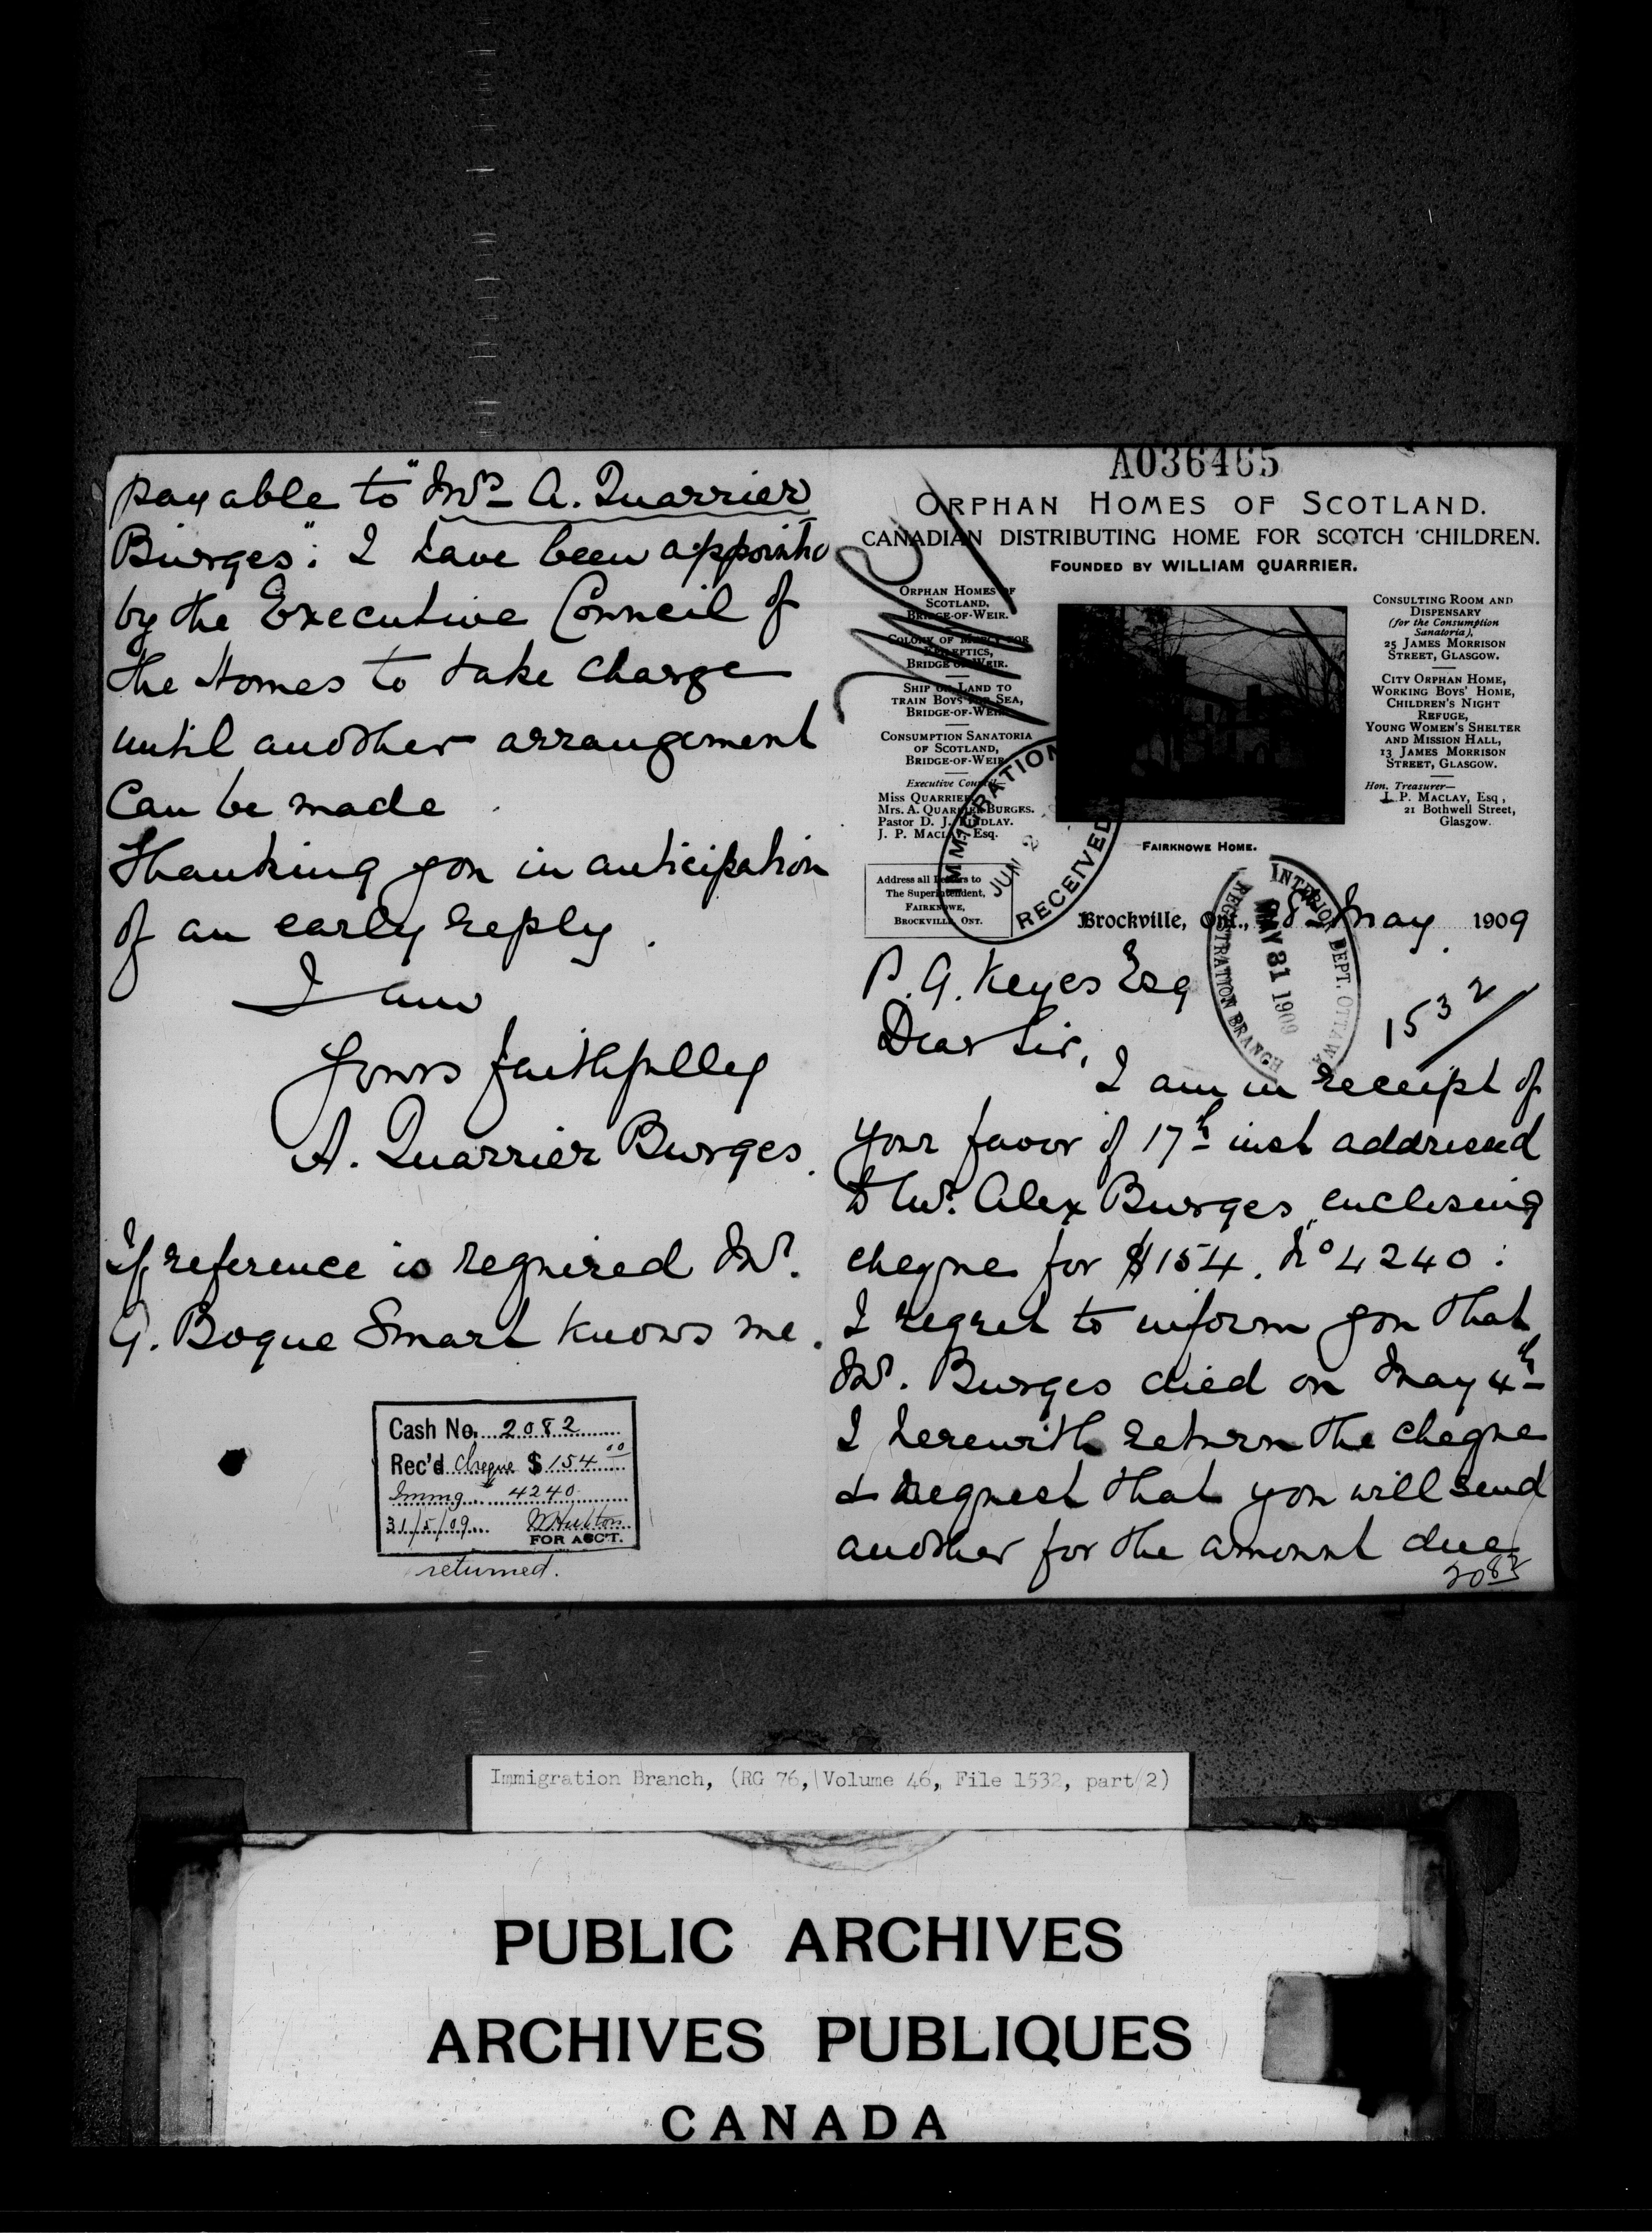 A036465
ORPHAN HOMES OF SCOTLAND.
CANADIAN DISTRIBUTING HOME FOR SCOTCH CHILDREN.
FOUNDED BY WILLIAM QUARRIER.
ORPHAN HOMES OF
SCOTLAND,
BRIDGE-OF-WEIR.
COLONY OF MERCY FOR
EPILEPTICS,
BRIDGE OF WEIR.
SHIP ON LAND TO
TRAIN BOYS FOR SEA,
BRIDGE-OF-WEIR.
CONSUMPTION SANATORIA
OF SCOTLAND,
BRIDGE-OF-WEIR
Executive Council
Miss QUARRIER
Mrs. A. QUARRIER BURGES.
Pastor D. J. FINDLAY.
J. P. MACLAY, Esq.
Address all Letters to
The Superintendent,
FAIRKNOWE,
BROCKVILLE, ONT.
CONSULTING ROOM AND
DISPENSARY
(for the Consumption
Sanatoria),
25 JAMES MORRISON
STREET, GLASGOW.
CITY ORPHAN HOME,
WORKING BOYS' HOME,
CHILDREN'S NIGHT
REFUGE,
YOUNG WOMEN'S SHELTER
AND MISSION HALL,
13 JAMES MORRISON
STREET, GLASGOW.
Hon. Treasurer—
J. P. MACLAY, Esq,
21 Bothwell Street,
Glasgow.
FAIRKNOWE HOME.
IMMIGRATION
JUN 2
RECEIVED
INTERIOR DEPT. OTTAWA
MAY 31 1909
REGISTRATION BRANCH
Brockville, Ont., May 1909
1532
P. G. Keyes Esq
Dear Sir,
I am in receipt of
your favor of 17th inst addressed
to Mr. Alex Burges enclosing
cheque for $154. No 4240:
I regret to inform you that
Mr. Burges died on May 4th
I herewith return the cheque
& request that you will send
another for the amount due
2082
payable to "Mrs A. Quarrier
Burges": I have been appointed
by the Executive Council of
the Homes to take charge
until another arrangement
Can be made
Thanking you in anticipation
of an early reply.
I am
Yours faithfully
A. Quarrier Burges.
If reference is required Mr.
G. Bogue Smart knows me.
Cash No. 2082
Rec'd Cheque $ 154.00
Immg 4240
31/5/09
FOR ACC'T.
returned.
Immigration Branch, (RG 76, Volume 46, File 1532, part 2)
PUBLIC ARCHIVES
ARCHIVES PUBLIQUES
CANADA